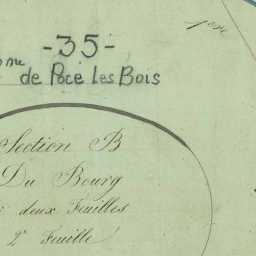 -35-
de Pocé les Bois
1ere
Section B
Du Bourg
deux Feuilles
2e Feuille